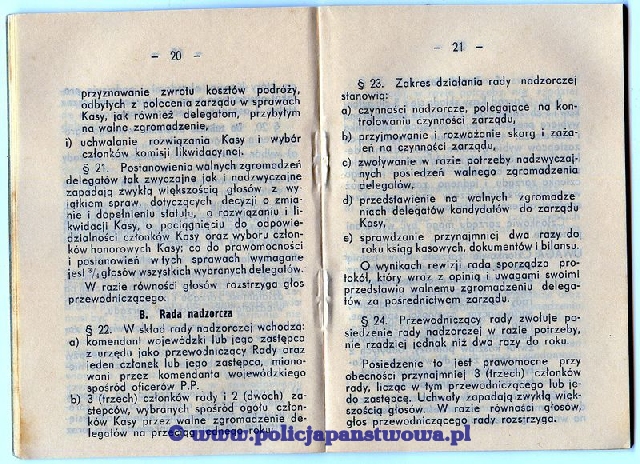 — 20 —
przyznawanie zwrotu kosztów podróży,
odbytych z polecenia zarządu w sprawach
Kasy, jak również delegatom, przybyłym
na walne zgromadzenie,
i) uchwalanie rozwiązania Kasy i wybór
członków komisji likwidacyjnej.
§ 21. Postanowienia walnych zgromadzeń
delegatów tak zwyczajne jak i nadzwyczajne
zapadają zwykłą większością głosów z wy-
jątkiem spraw, dotyczących decyzji o zmia-
nie i dopełnieniu statutu, o rozwiązaniu i li-
kwidacji Kasy, o pociągnięciu do odpowie-
dzialności członków Kasy oraz wyboru człon-
ków honorowych Kasy; co do prawomocności
i postanowień w tych sprawach wymagane
jest głosów wszystkich wybranych delegatów.
W razie równości głosów rozstrzyga głos
przewodniczącego.
B. Rada nadzorcza
§ 22. W skład rady nadzorczej wchodzą:
a) komendant wojewódzki lub jego zastępca
z urzędu jako przewodniczący Rady oraz
jeden członek lub jego zastępca, miano-
wani przez komendanta wojewódzkiego
spośród oficerów P.P.
b) 3 (trzech) członków rady i 2 (dwóch) za-
stępców, wybranych spośród ogółu człon-
ków Kasy przez walne zgromadzenie de-
legatów na przeciąg jednego roku.
— 21 —
§ 23. Zakres działania rady nadzorczej
stanowią:
a) czynności nadzorcze, polegające na kon-
trolowaniu czynności zarządu,
b) przyjmowanie i rozważanie skarg i zaża-
leń na czynności zarządu,
c) zwoływanie w razie potrzeby nadzwyczaj-
nych posiedzeń walnego zgromadzenia
delegatów,
d) przedstawienie na walnych zgromadze-
niach delegatów kandydatów do zarządu
Kasy,
e) sprawdzanie przynajmniej dwa razy do
roku ksiąg kasowych, dokumentów i bilansu.
O wynikach rewizji rada sporządza pro-
tokół, który wraz z opinią i uwagami swoimi
przedstawia walnemu zgromadzeniu delega-
tów za pośrednictwem zarządu.
§ 24. Przewodniczący rady zwołuje po-
siedzenie rady nadzorczej w razie potrzeby,
nie rzadziej jednak niż dwa razy do roku.
Posiedzenie to jest prawomocne przy
obecności przynajmniej 3 (trzech) członków
rady, licząc w tym przewodniczącego lub je-
go zastępcę. Uchwały zapadają zwykłą więk-
szością głosów. W razie równości głosów,
głos przewodniczącego rady rozstrzyga.
© www.policjapanstwowa.pl